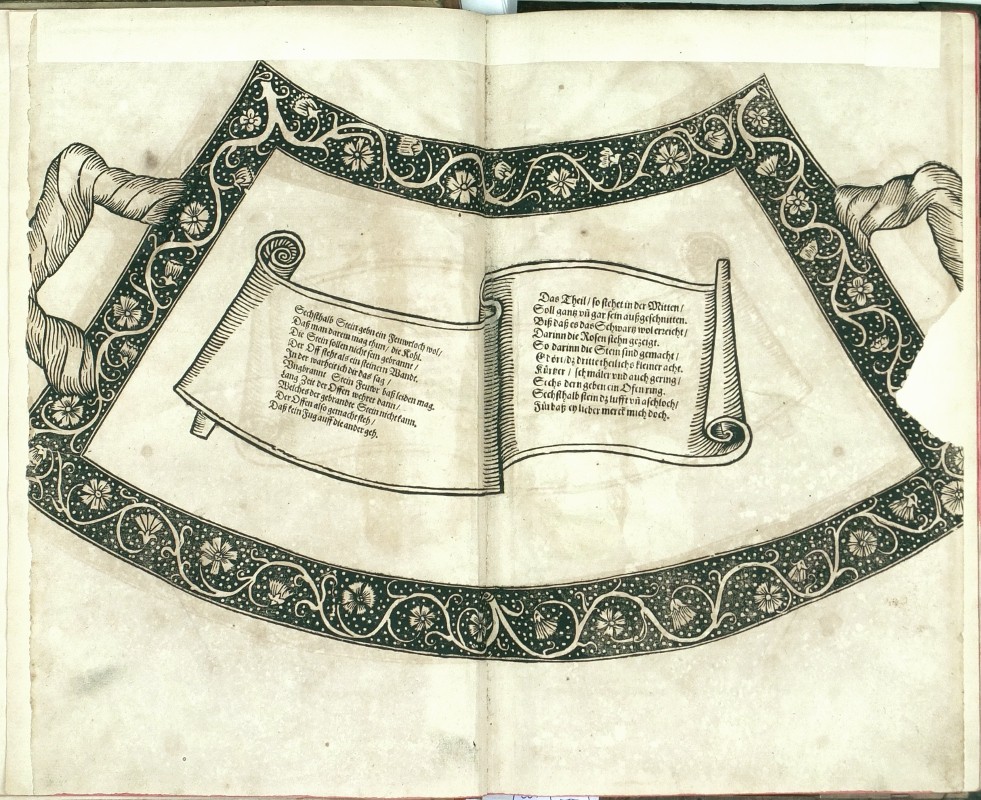 Sechsthalb Stein gebn ein Feuwrloch wol/
Daß man darein mag thun / die Kohl.
Die Stein sollen nicht sein gebrannt/
Der Off steht als ein steinein Wandt.
In der warheit ich dir das sag/
Vngbrannt Stein Feuwr baß leiden mag.
Lang Zeit der Offen wehret dann/
Welches der gebrandte Stein nicht kann.
Der Offen also gemacht steh/
Daß kein Fug auff die ander geh.
Das Theil / so stehet in der Mitten/
Soll gantz vñ gar sein außgeschnitten.
Biß daß es das Schwartz wol erreicht/
Darinn die Rosen stehn gezeigt.
So darinn die Stein sind gemacht/
dz dritte theil kleiner acht.
Kürtzer / schmäler vnd auch gering/
Sechs dern geben ein Ofen ring.
Sechsthalb stein dz lufft vñ aschloch/
Für daß ey lieber merck mich doch.